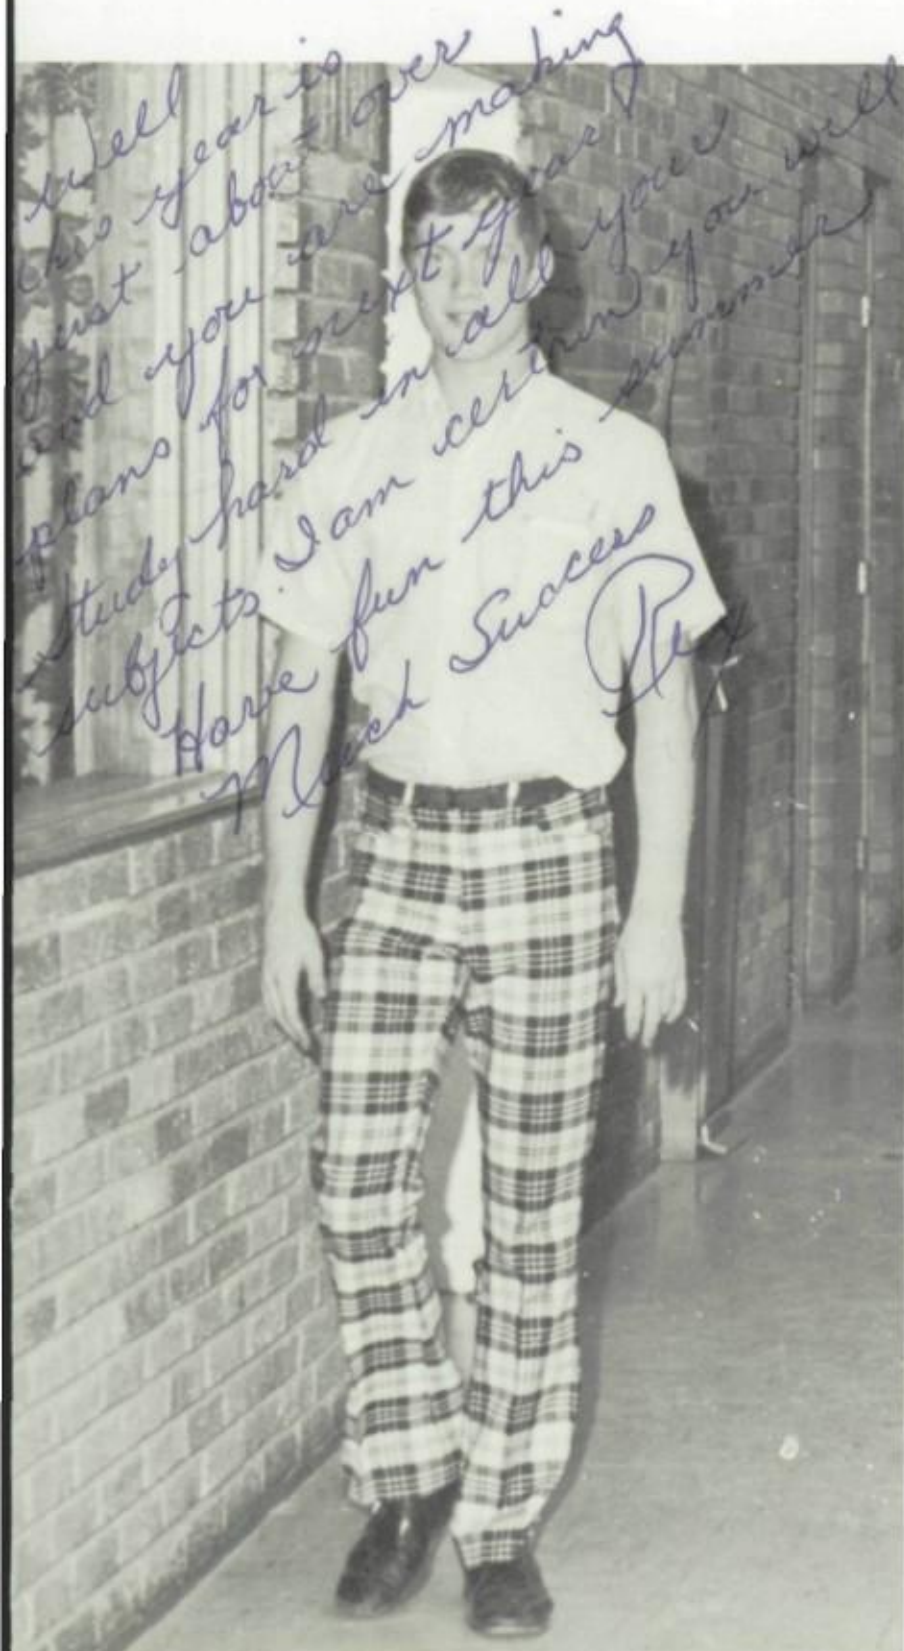 Well
this year is
just about over
and you are making
plans for next year!
Study hard in all your
subjects. I am certain you will
Have fun this summer
Much Success
Rex